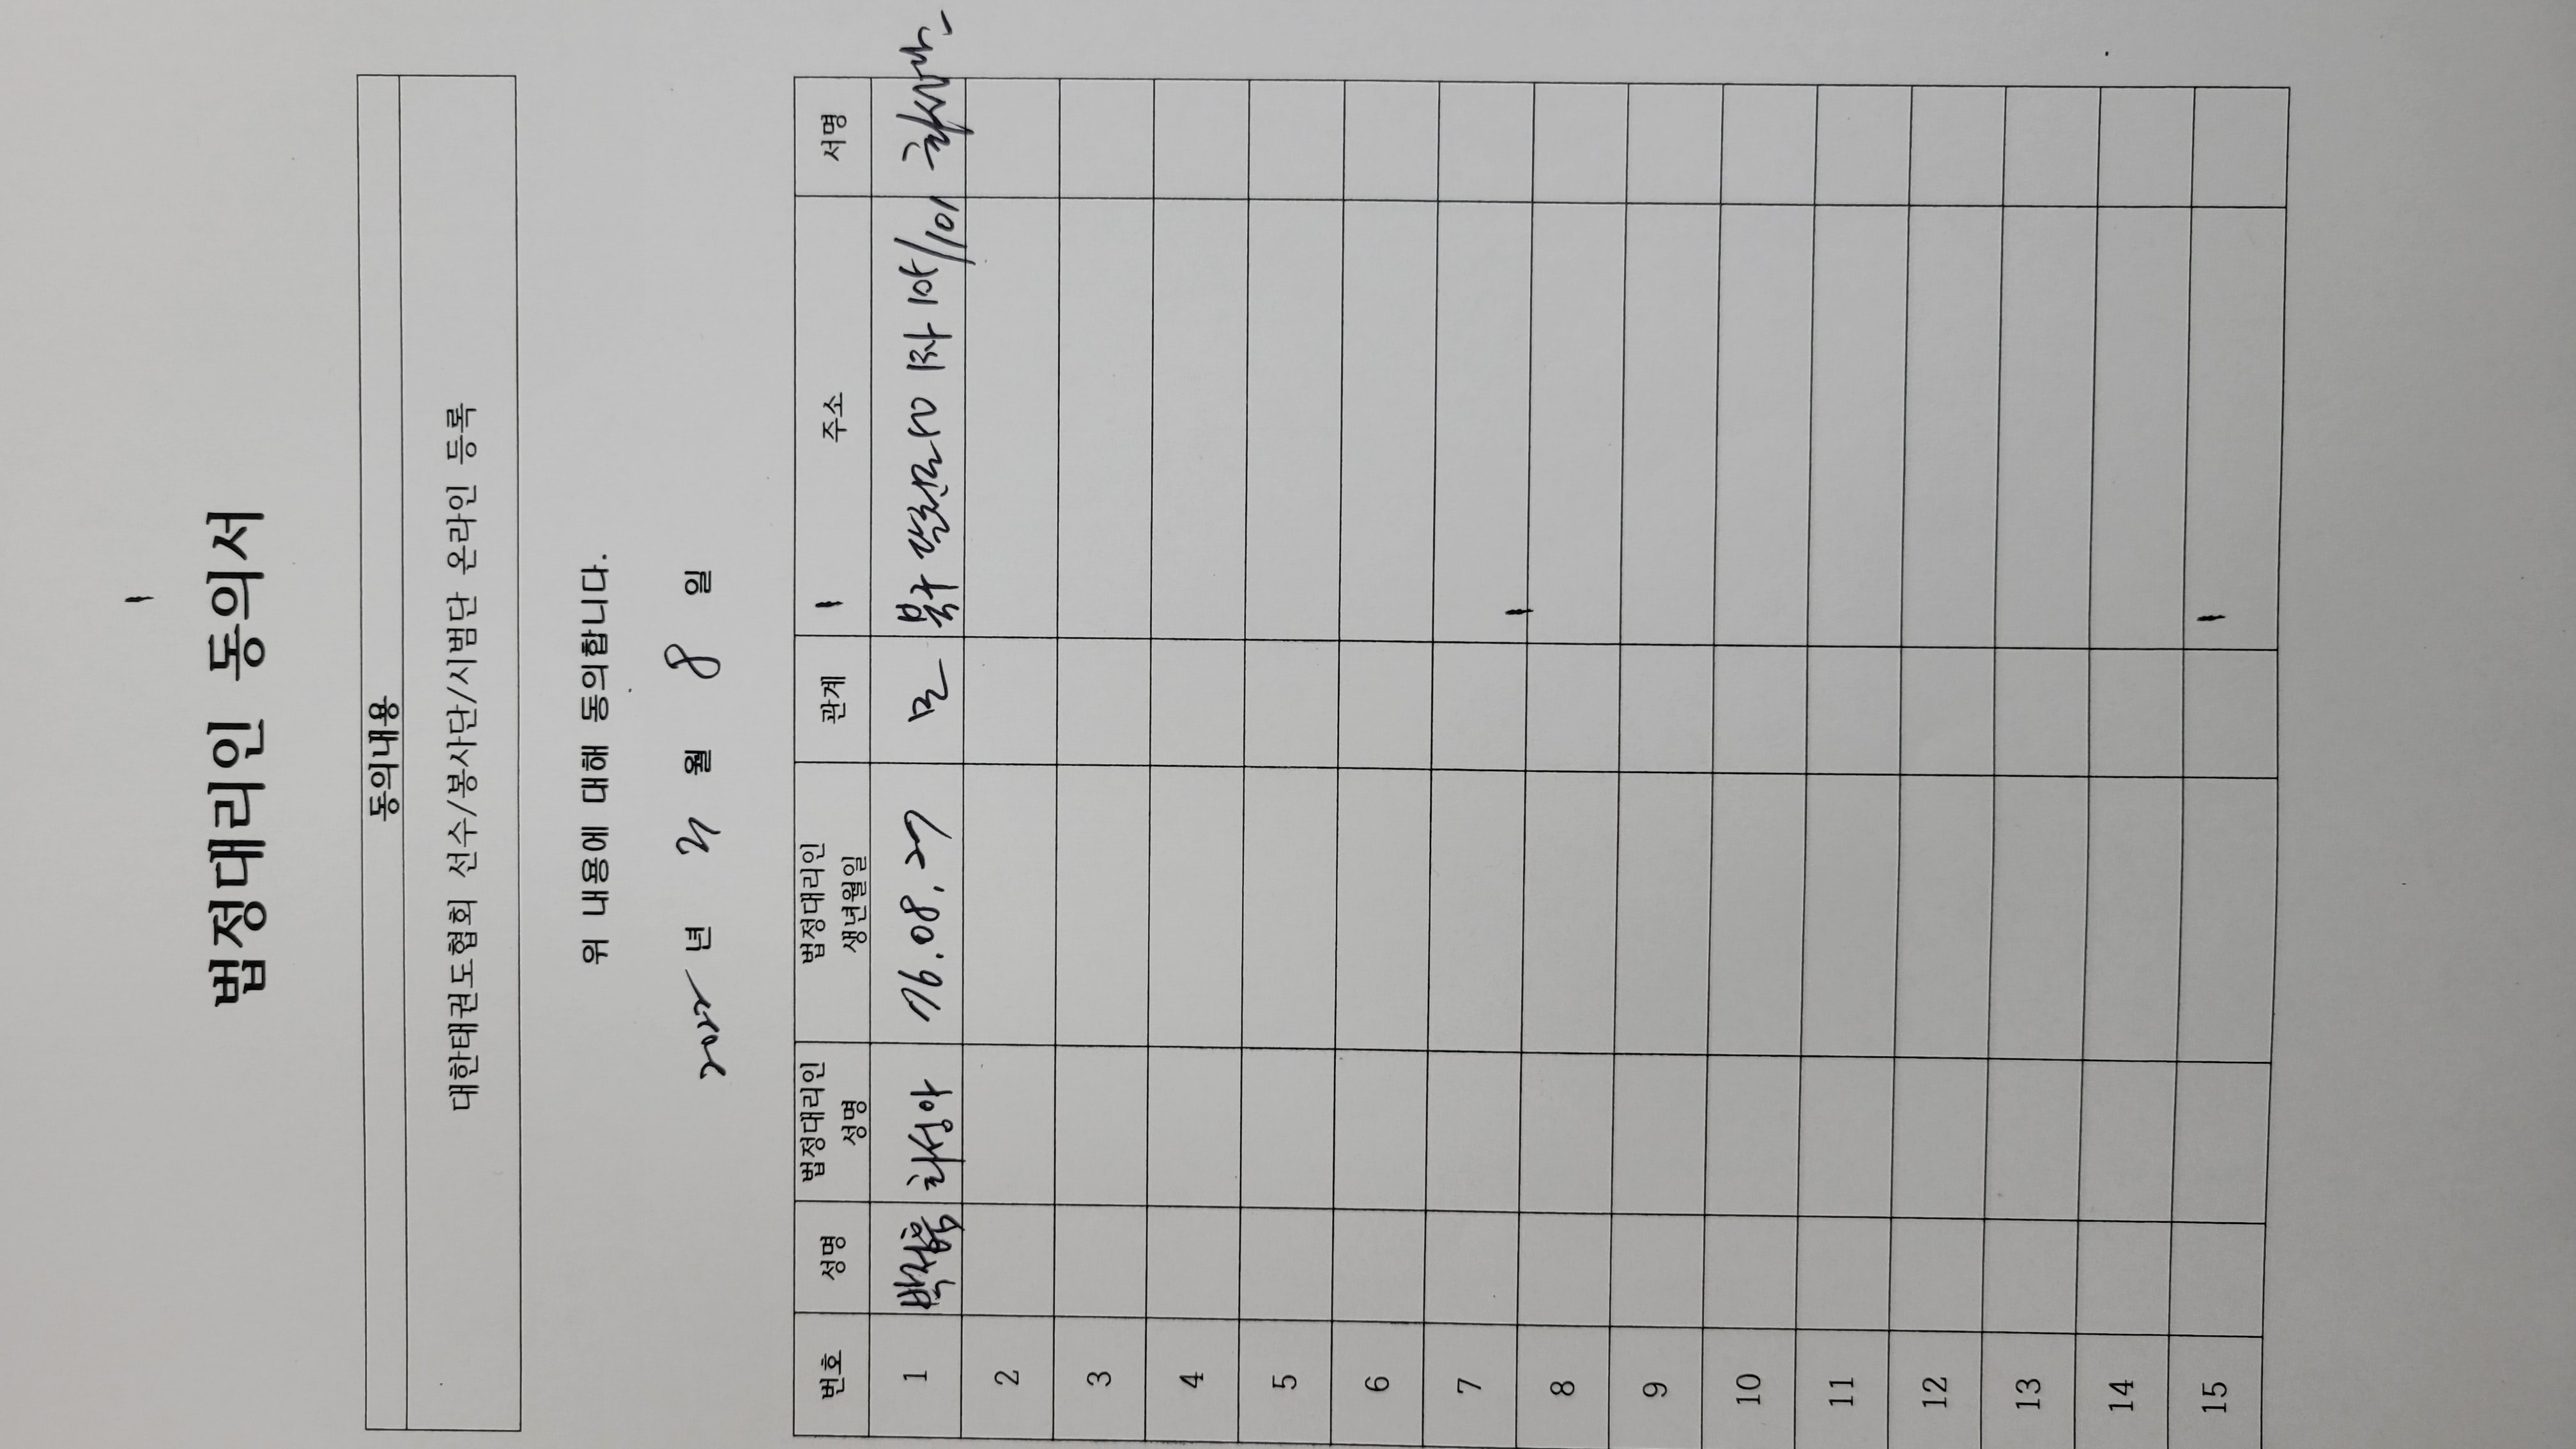 법정대리인 동의서
동의내용
대한태권도협회 선수/봉사단/시범단 온라인 등록
위 내용에 대해 동의합니다.
년 월 8 일
번호 성명 법정대리인 성명 법정대리인 생년월일 관계 주소 서명
1 최성아 76.08.27 모 북구
2
3
4
5
6
7
8
9
10
11
12
13
14
15